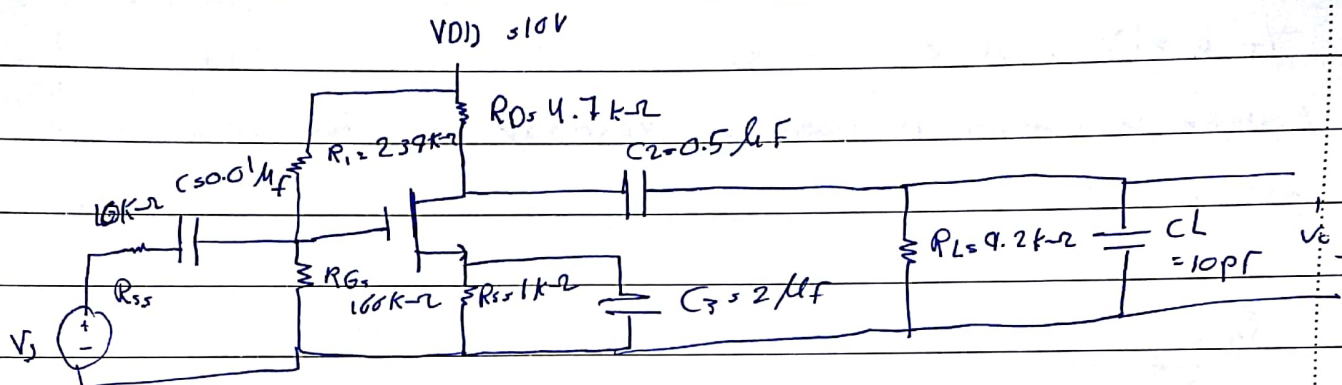 VDD = 10V
RD = 4.7 kΩ
R1 = 239KΩ
C2=0.5 μF
C=0.01μf
10KΩ
Rss
RG=
166K-Ω
Rs=1KΩ
C3=2 μf
RL= 9.2kΩ
CL
=10pF